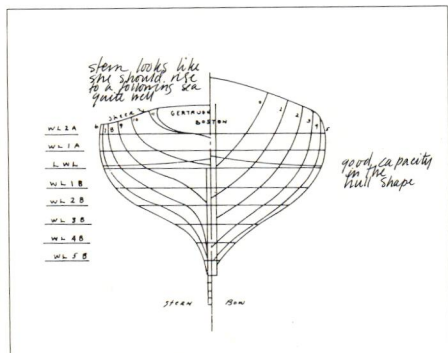 stern looks like
she should rise
to a following sea
quite well
SHEER
GERTRUSH
BOSTON
WL2A
WL1A
LWL
WL1B
WL2B
WL3B
WL4B
WL5B
good capacity
in the
hull shape
STERN BOW